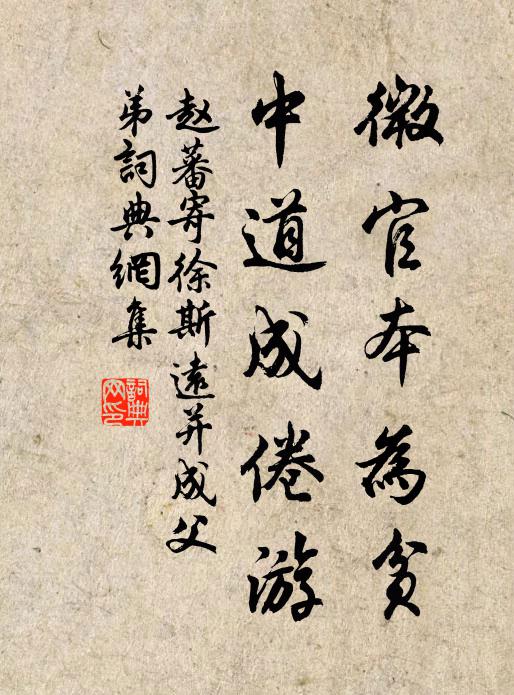 微官本為貧
中道成倦游
赵蕃寄徐斯遠并成父
弟詞典網集
詞典网印